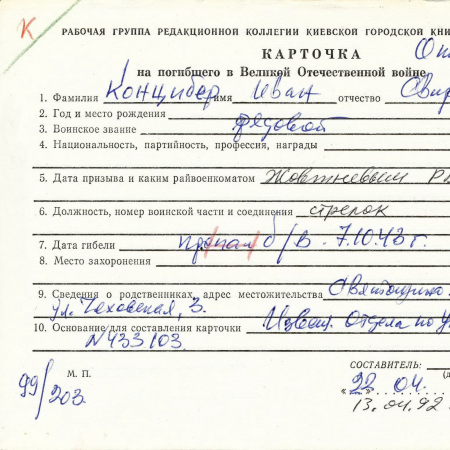 К
РАБОЧАЯ ГРУППА РЕДАКЦИОННОЙ КОЛЛЕГИИ КИЕВСКОЙ ГОРОДСКОЙ КНИ
КАРТОЧКА
на погибшего в Великой Отечественной войне
1. Фамилия Концибер имя Иван отчество
2. Год и место рождения
3. Воинское звание рядовой
4. Национальность, партийность, профессия, награды
5. Дата призыва и каким райвоенкоматом Жовтневым Р
6. Должность, номер воинской части и соединения стрелок
7. Дата гибели пропал б/в 7.10.43 г.
8. Место захоронения
9. Сведения о родственниках, адрес местожительства Святошино
ул. Чеховская, 3.
10. Основание для составления карточки Извещ. отдела по
N433103.
СОСТАВИТЕЛЬ:
М. П.
99/203.
"22 04.
13.04.92